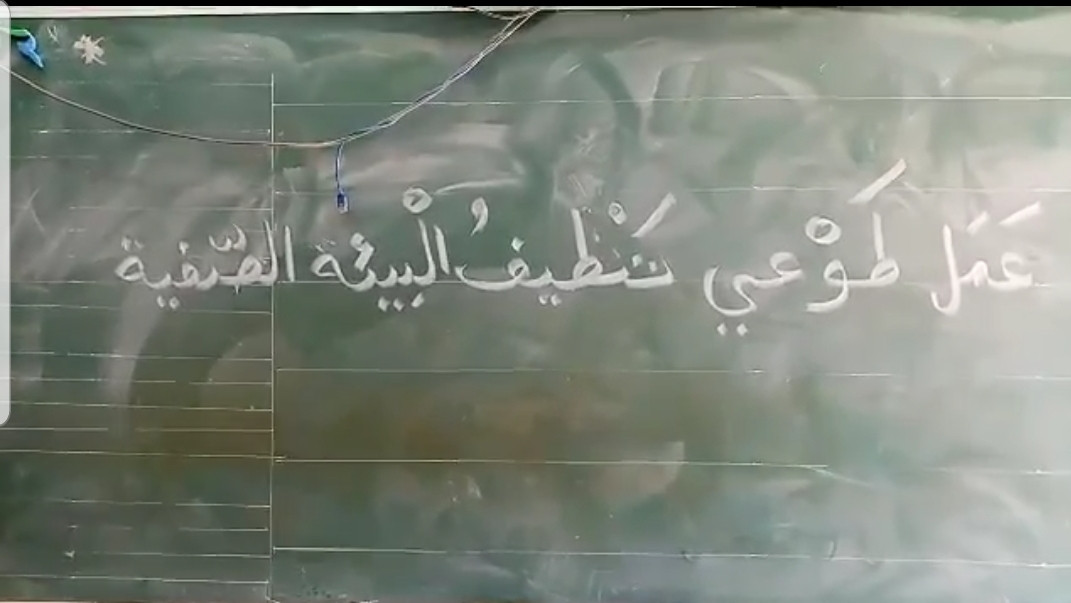 عَمَل طَوْعي تَنْظيفُ الْبيئة الصّفية